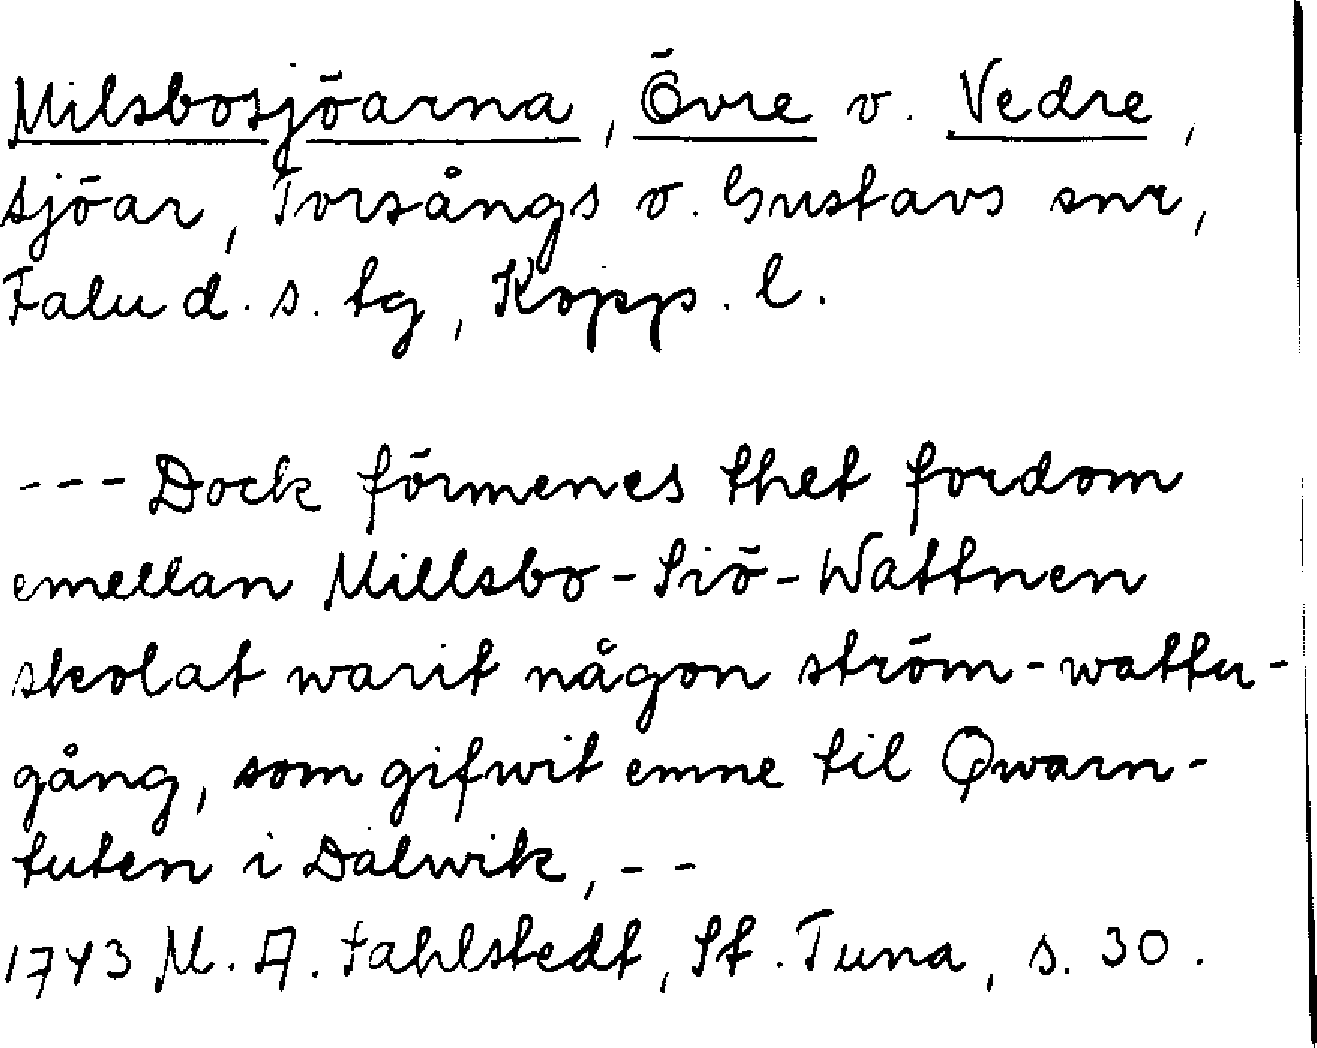 Milsbosjöarna, Övre o. Nedre,
sjöar, Torsångs o. Gustavs snr,
Falu d. s. tg, Kopp. l.
--- Dock förmenes thet fordom
emellan Millsbo-Siö-Wattnen
skolat warit någon ström-wattu-
gång, som gifwit emne til Qwarn-
tuten i Dalwik, --
1743 M. A. Fahlstedt, St. Tuna, s. 30.